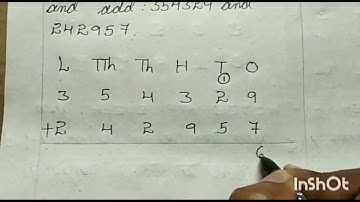 and add : 354329 and
242957.
L TTh Th H T O
①
3 5 4 3 2 9
+2 4 2 9 5 7
6
InShOt